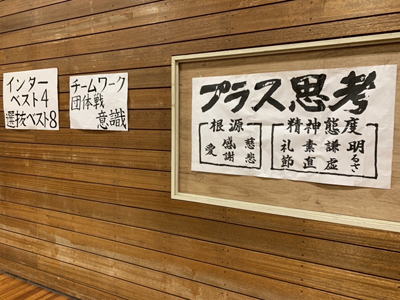 インター
ベスト4
選抜ベスト8
チームワーク
団体戦
意識
プラス思考
根源
愛
感謝
慈悲
精神態度
礼節
素直
謙虚
明るさ